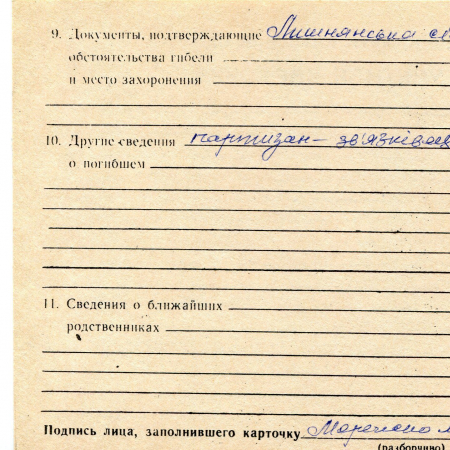 9. Документы, подтверждающие Лишнянська
обстоятельства гибели
и место захоронения
10. Другие сведения партизан - зв'язківець
о погибшем
11. Сведения о ближайших
родственниках
Подпись лица, заполнившего карточку
(разборчиво)